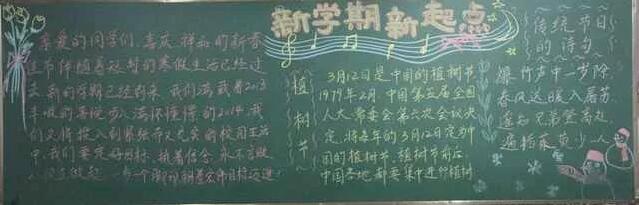 新学期新起点
亲爱的同学们,喜庆祥和的新春
佳节伴随着短暂的寒假生活已经过
去,新的学期已经到来,我们满载着2013
丰收的喜悦步入满怀憧憬的2014,我
们又将投入到紧张而又充实的校园生活
中,我们要定好目标,执着信念,永不言败
个
目标迈进!
植树节
3月12日是中国的植树节
1979年2月,中国第五届全国
人大常委会第六次会议决
定,将每年的3月12日定为中
国的植树节,植树节前后,
中国各地都要集中进行植树
传统节日
的诗句
爆竹声中一岁除
春风送暖入屠苏
遥知兄弟登高处
遍插茱萸少一人